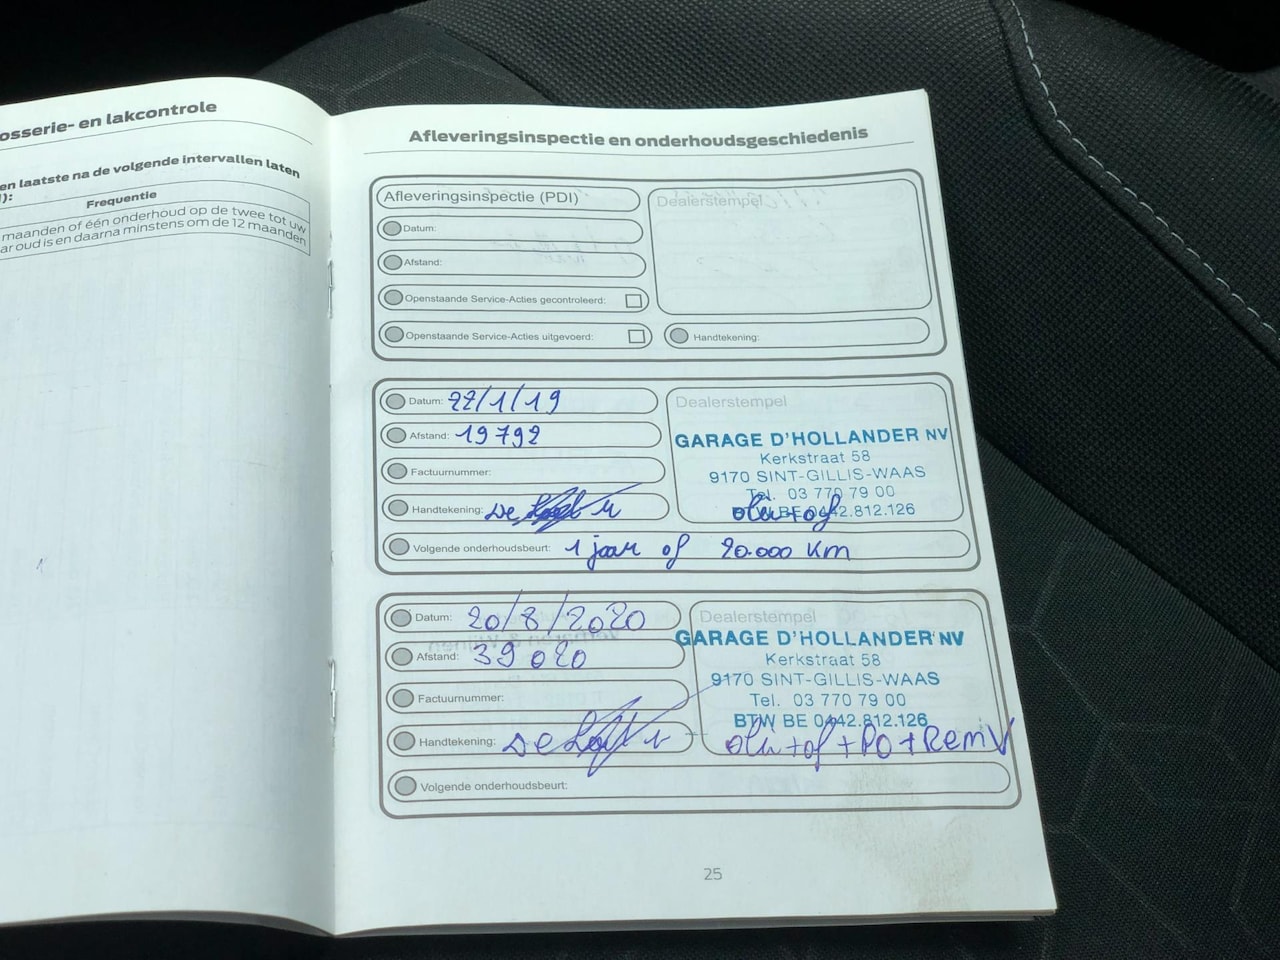 osserie- en lakcontrole
en laatste na de volgende intervallen laten
):
Frequentie
maanden of één onderhoud op de twee tot uw
ar oud is en daarna minstens om de 12 maanden
Afleveringsinspectie en onderhoudsgeschiedenis
Afleveringsinspectie (PDI)
Dealerstempel
Datum:
Afstand:
Openstaande Service-Acties gecontroleerd:
Openstaande Service-Acties uitgevoerd:
Handtekening:
Datum: 22/1/19
Afstand: 19792
Factuurnummer:
Handtekening:
Dealerstempel
GARAGE D'HOLLANDER NV
Kerkstraat 58
9170 SINT-GILLIS-WAAS
Tel. 03 770 79 00
BTW BE 0442.812.126
olie+of
Volgende onderhoudsbeurt: 1 jaar of 20.000 km
Datum: 20/8/2020
Afstand: 39020
Factuurnummer:
Handtekening:
Dealerstempel
GARAGE D'HOLLANDER NV
Kerkstraat 58
9170 SINT-GILLIS-WAAS
Tel. 03 770 79 00
BTW BE 0442.812.126
olie+of+PO+RemV
Volgende onderhoudsbeurt:
25